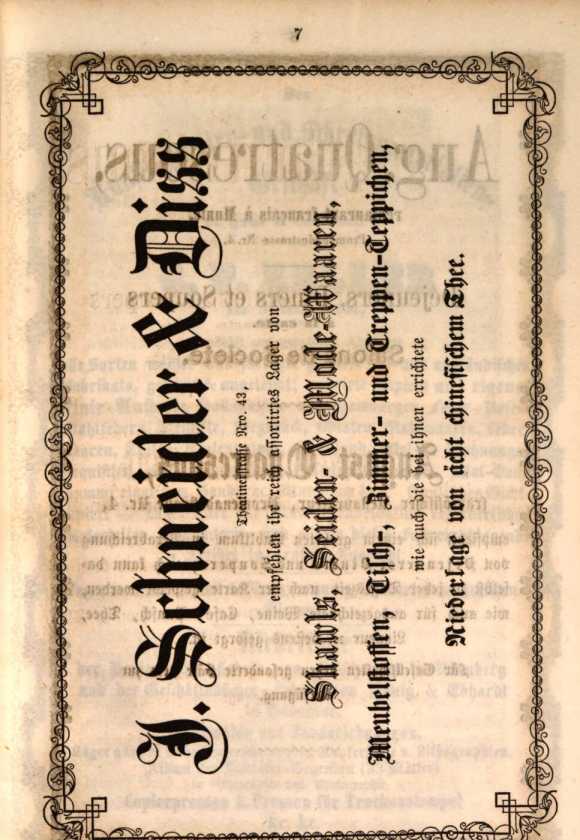 7
J. Schneider & Diss
Theatinerstraße Nro. 43,
empfehlen ihr reich assortirtes Lager von
Shawls, Seiden- & Mode-Waaren,
Meubelstoffen, Tisch-, Zimmer- und Treppen-Teppichen,
wie auch die bei ihnen errichtete
Niederlage von ächt chinesischem Thee.